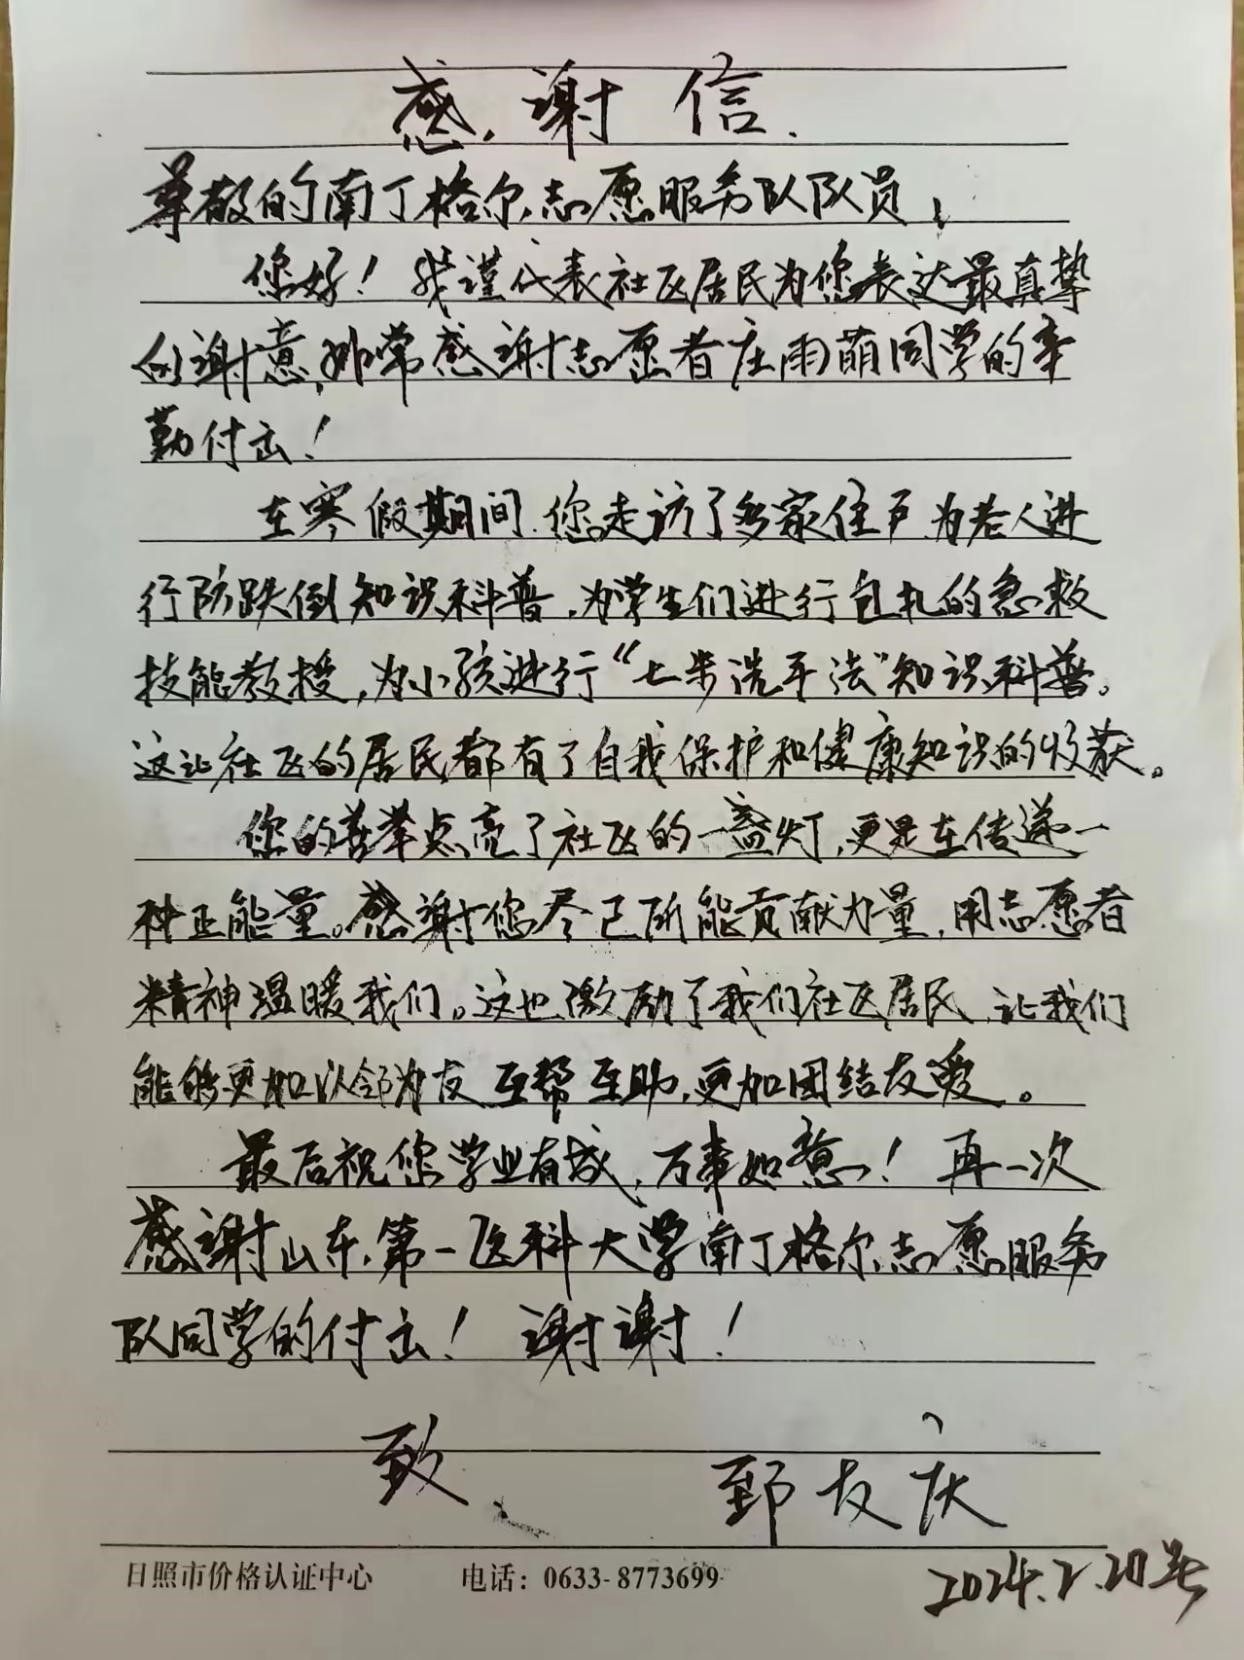 感谢信
尊敬的南丁格尔志愿服务队队员：
您好！我谨代表社区居民为您表达最真挚
的谢意，非常感谢志愿者庄雨萌同学的辛
勤付出！
在寒假期间，您走访了多家住户，为老人进
行防跌倒知识科普，为学生们进行包扎的急救
技能教授，为小孩进行“七步洗手法”知识科普。
这让社区的居民都有了自我保护和健康知识的收获。
您的善举点亮了社区的一盏灯，更是在传递一
种正能量。感谢您尽己所能贡献力量，用志愿者
精神温暖我们。这也激励了我们社区居民，让我们
能够更加以邻为友，互帮互助，更加团结友爱。
最后祝您学业有成，万事如意！再一次
感谢山东第一医科大学南丁格尔志愿服务
队同学的付出！谢谢！
致
郅友庆
日照市价格认证中心 电话：0633-8773699
2024.2.20号